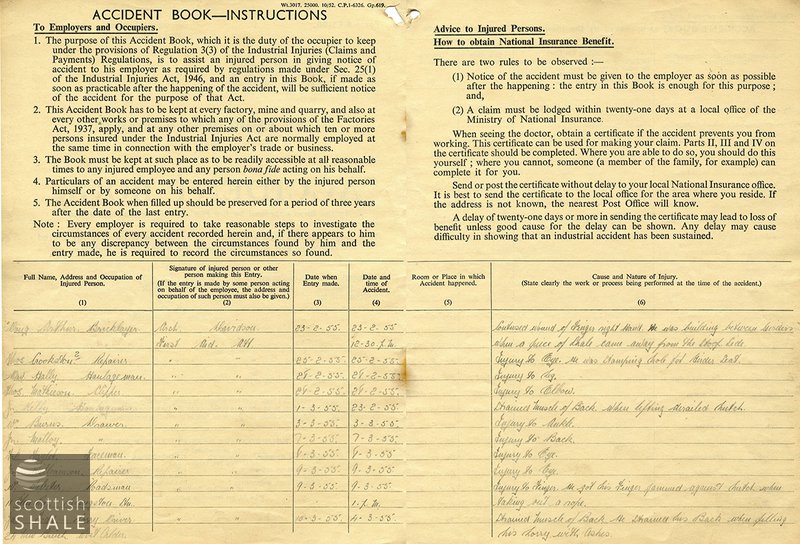 Wt.3017. 25000. 10/52. C.P.I-6326. Gp.619.
ACCIDENT BOOK—INSTRUCTIONS
To Employers and Occupiers.
1. The purpose of this Accident Book, which it is the duty of the occupier to keep
under the provisions of Regulation 3(3) of the Industrial Injuries (Claims and
Payments) Regulations, is to assist an injured person in giving notice of
accident to his employer as required by regulations made under Sec. 25(1)
of the Industrial Injuries Act, 1946, and an entry in this Book, if made as
soon as practicable after the happening of the accident, will be sufficient notice
of the accident for the purpose of that Act.
2. This Accident Book has to be kept at every factory, mine and quarry, and also at
every other works or premises to which any of the provisions of the Factories
Act, 1937, apply, and at any other premises on or about which ten or more
persons insured under the Industrial Injuries Act are normally employed at
the same time in connection with the employer's trade or business.
3. The Book must be kept at such place as to be readily accessible at all reasonable
times to any injured employee and any person bona fide acting on his behalf.
4. Particulars of an accident may be entered herein either by the injured person
himself or by someone on his behalf.
5. The Accident Book when filled up should be preserved for a period of three years
after the date of the last entry.
Note : Every employer is required to take reasonable steps to investigate the
circumstances of every accident recorded herein and, if there appears to him
to be any discrepancy between the circumstances found by him and the
entry made, he is required to record the circumstances so found.
Advice to Injured Persons.
How to obtain National Insurance Benefit.
There are two rules to be observed :—
(1) Notice of the accident must be given to the employer as soon as possible
after the happening : the entry in this Book is enough for this purpose ;
and,
(2) A claim must be lodged within twenty-one days at a local office of the
Ministry of National Insurance.
When seeing the doctor, obtain a certificate if the accident prevents you from
working. This certificate can be used for making your claim. Parts II, III and IV on
the certificate should be completed. Where you are able to do so, you should do this
yourself ; where you cannot, someone (a member of the family, for example) can
complete it for you.
Send or post the certificate without delay to your local National Insurance office.
It is best to send the certificate to the local office for the area where you reside. If
the address is not known, the nearest Post Office will know.
A delay of twenty-one days or more in sending the certificate may lead to loss of
benefit unless good cause for the delay can be shown. Any delay may cause
difficulty in showing that an industrial accident has been sustained.
Full Name, Address and Occupation of
Injured Person.
(1)
Signature of injured person or other
person making this Entry.
(If the entry is made by some person acting
on behalf of the employee, the address and
occupation of such person must also be given.)
(2)
Date when
Entry made.
(3)
Date and
time of
Accident.
(4)
Room or Place in which
Accident happened.
(5)
Cause and Nature of Injury.
(State clearly the work or process being performed at the time of the accident.)
(6)
Arthur Bricklayer Davidson 23-2-55. 23-2-55. wound of Finger right Hand. He was building between Girders
First Aid 12-30 p.m. when a piece of Shale came away from the Roof side.
Thos Crookston Repairer " " 25-2-55. 25-2-55. Injury to Eye. He was Clamping Hole for Girder Seat.
Hally Haulageman. " " 28-2-55. 28-2-55. Injury to Leg.
Thos Mathieson " " 28-2-55. 28-2-55. Injury to Elbow.
" " 1-3-55. 23-2-55. Strained Muscle of Back when lifting derailed Hutch.
Wm Burns Drawer " " 3-3-55. 3-3-55. Injury to Ankle.
Jn Molloy " " " 7-3-55. 7-3-55. Injury to Back.
Fireman " " 8-3-55. 9-3-55. Injury to Eye.
Repairer " " 9-3-55. 9-3-55. Injury to Eye.
Roadsman " " 9-3-55. 9-3-55. Injury to Finger. He got his Finger jammed against Hutch when
1-p.m. taking out a rope.
Driver " " 10-3-55. 4-3-55. Strained Muscle of Back. He Strained his Back when filling
his lorry with Ashes.
scottish
SHALE